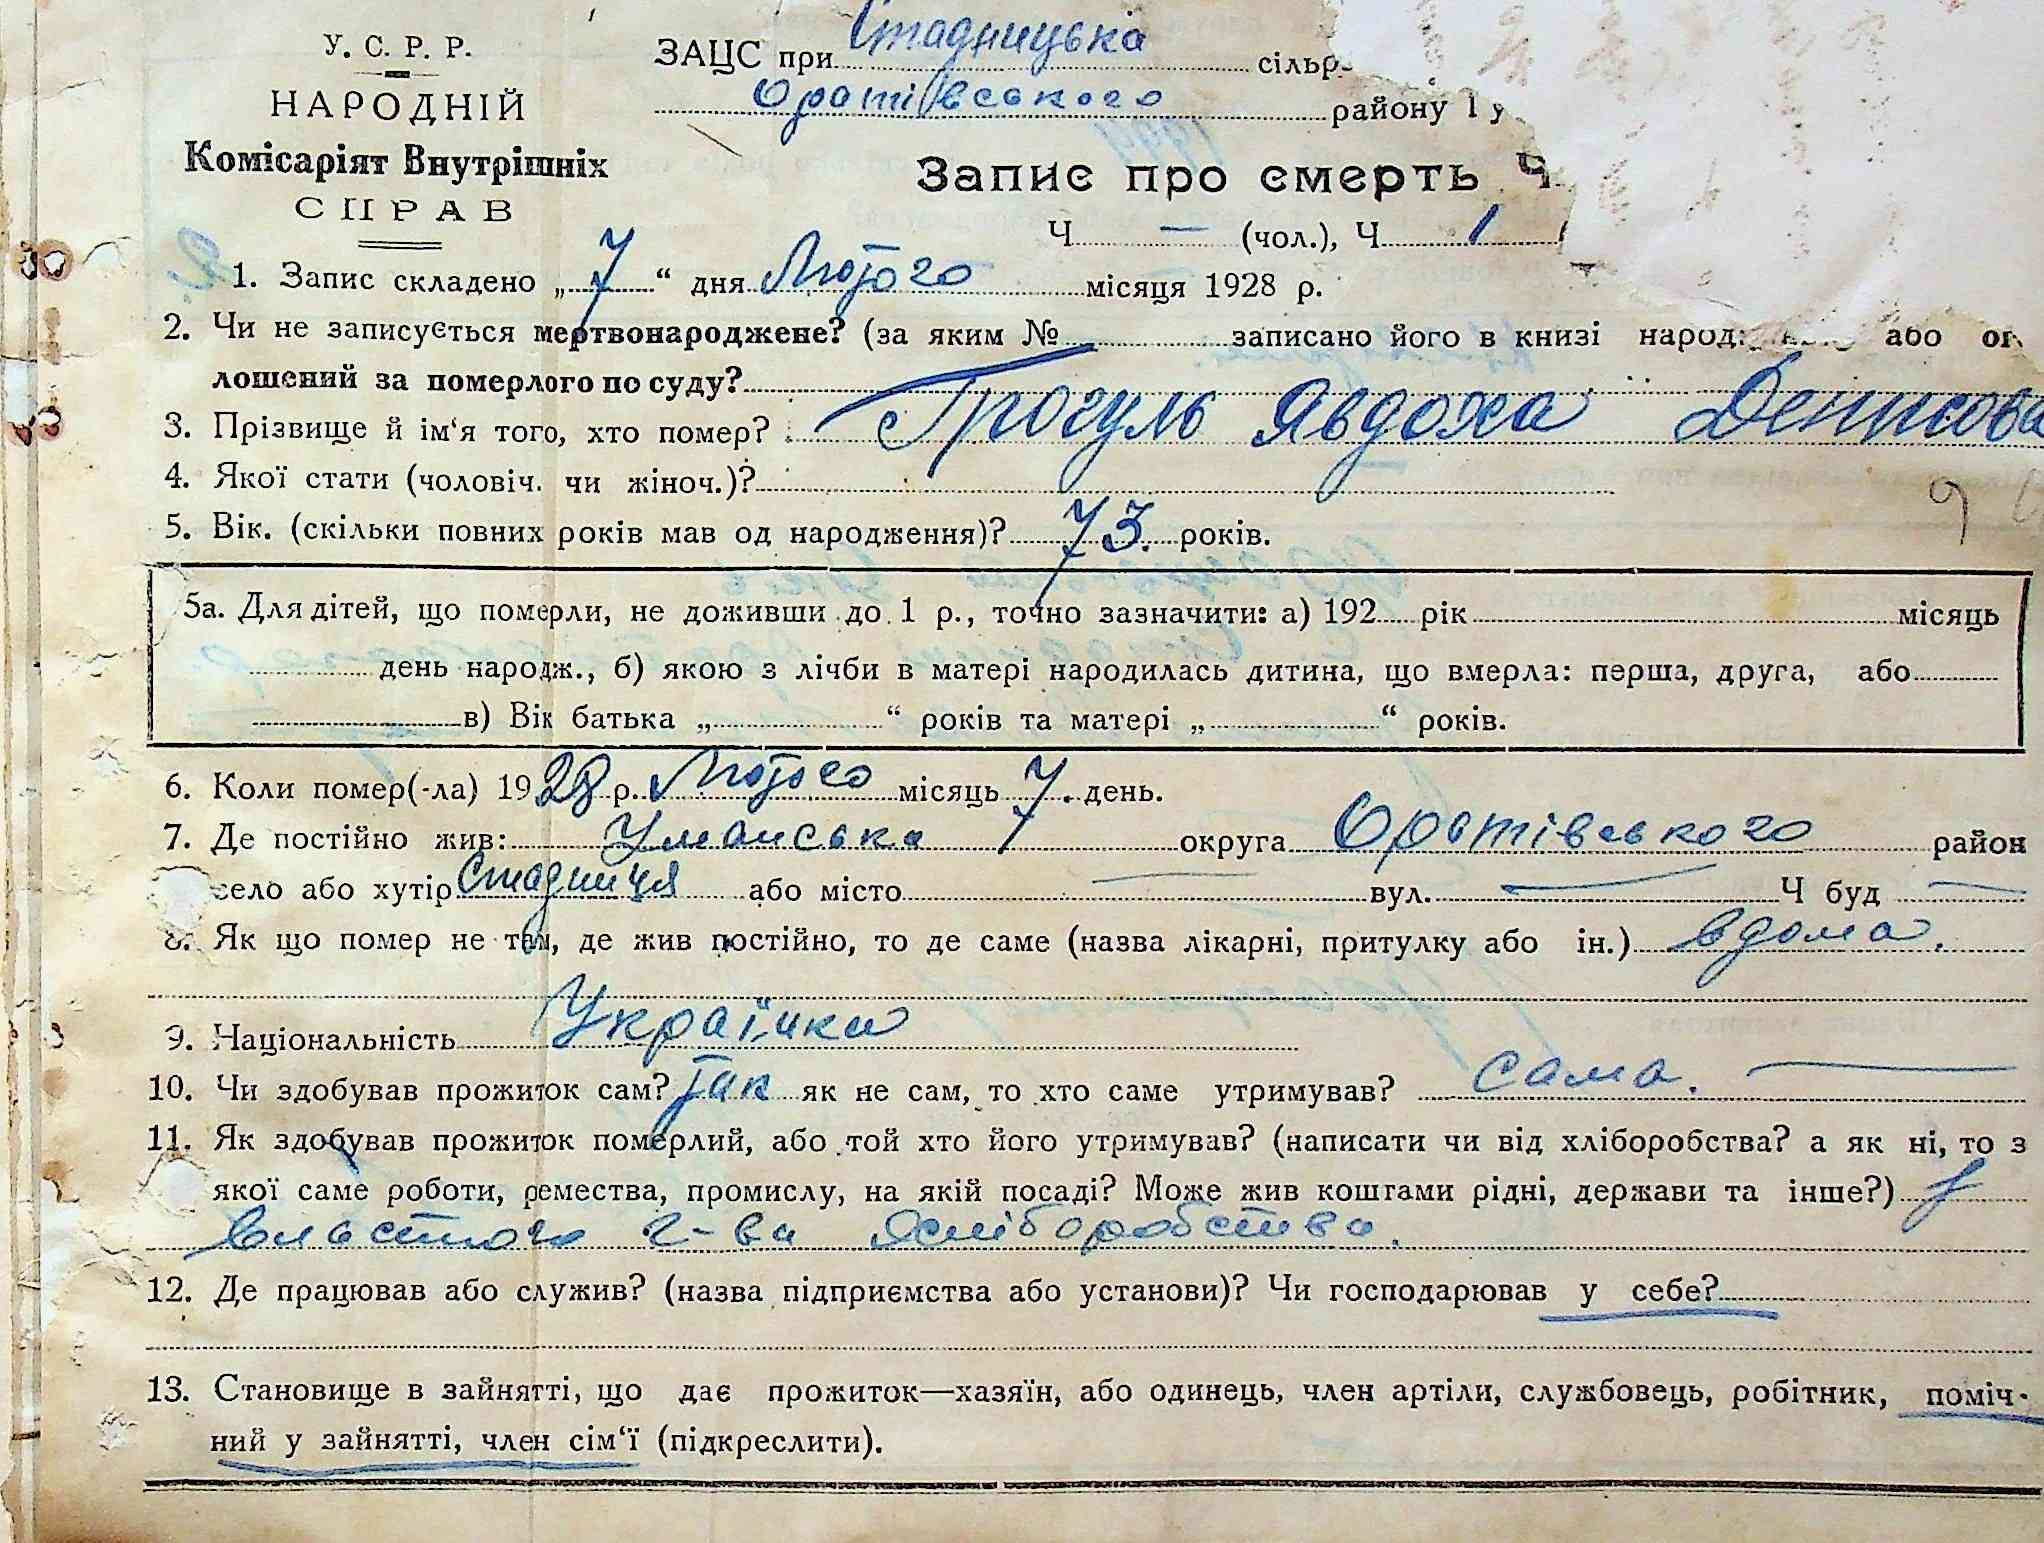 У. С. Р. Р.
НАРОДНІЙ
Комісаріят Внутрішніх
СПРАВ
ЗАЦС при Стадницька сільр
Оратівського району
Запис про смерть Ч.
Ч — (чол.), Ч 1
1. Запис складено „ 7 “ дня Лютого місяця 1928 р.
2. Чи не записується мертвонароджене? (за яким № записано його в книзі народ. або ог
лошений за померлого по суду?
3. Прізвище й ім‘я того, хто помер? Прогуль Явдоха Денисова
4. Якої стати (чоловіч. чи жіноч.)?
5. Вік. (скільки повних років мав од народження)? 73. років.
5а. Для дітей, що померли, не доживши до 1 р., точно зазначити: а) 192 рік місяць
день народж., б) якою з лічби в матері народилась дитина, що вмерла: перша, друга, або
в) Вік батька „ “ років та матері „ “ років.
6. Коли помер(-ла) 1928 р. Лютого місяць 7. день.
7. Де постійно жив: Уманська округа Оратівського район
село або хутір Стадниця або місто — вул. — Ч буд —
8. Як що помер не там, де жив постійно, то де саме (назва лікарні, притулку або ін.) вдома.
9. Національність Українка
10. Чи здобував прожиток сам? Так як не сам, то хто саме утримував? сама. —
11. Як здобував прожиток померлий, або той хто його утримував? (написати чи від хліборобства? а як ні, то з
якої саме роботи, ремества, промислу, на якій посаді? Може жив коштами рідні, держави та інше?)
власного г-ва хліборобства.
12. Де працював або служив? (назва підприємства або установи)? Чи господарював у себе?
13. Становище в зайнятті, що дає прожиток—хазяїн, або одинець, член артіли, службовець, робітник, поміч-
ний у зайнятті, член сім‘ї (підкреслити).